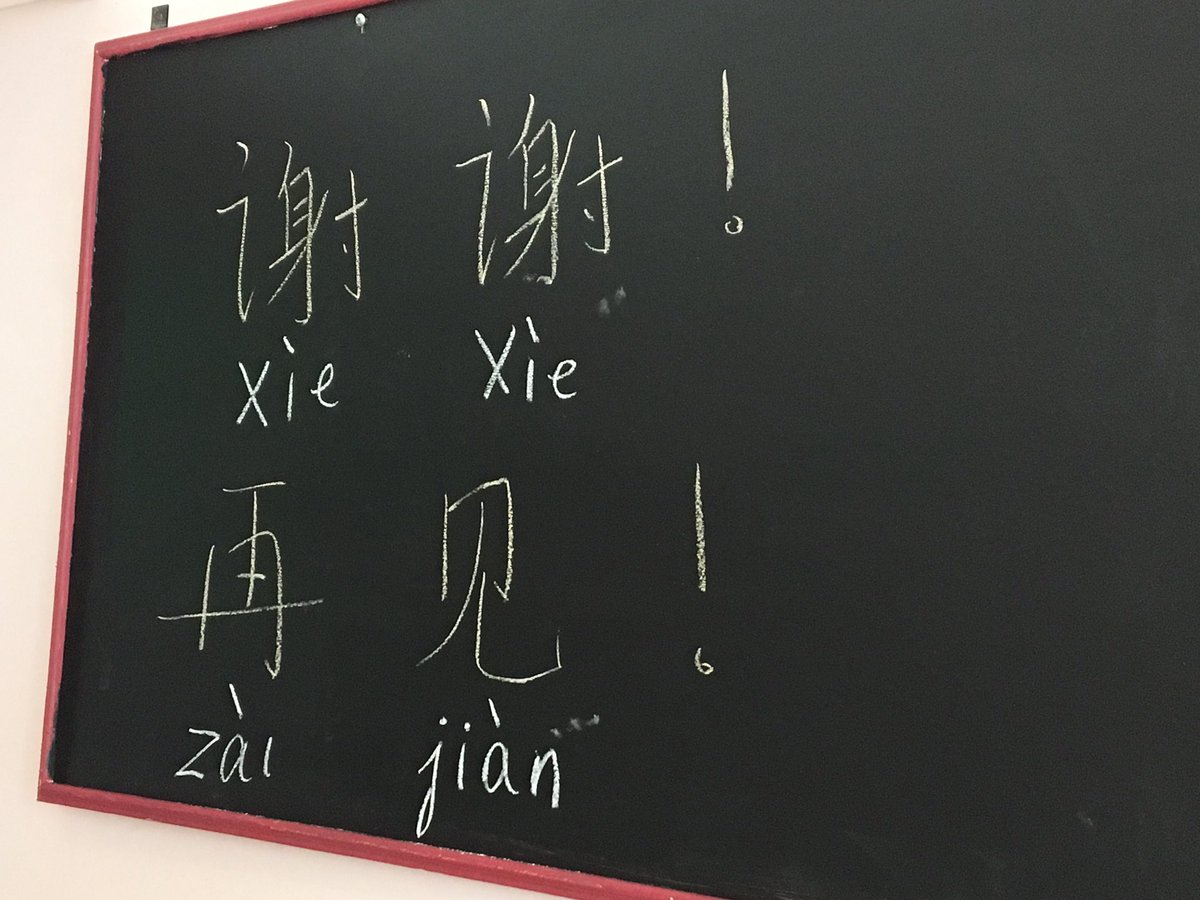 谢 谢 !
xìe Xìe
再 见 !
zài jiàn